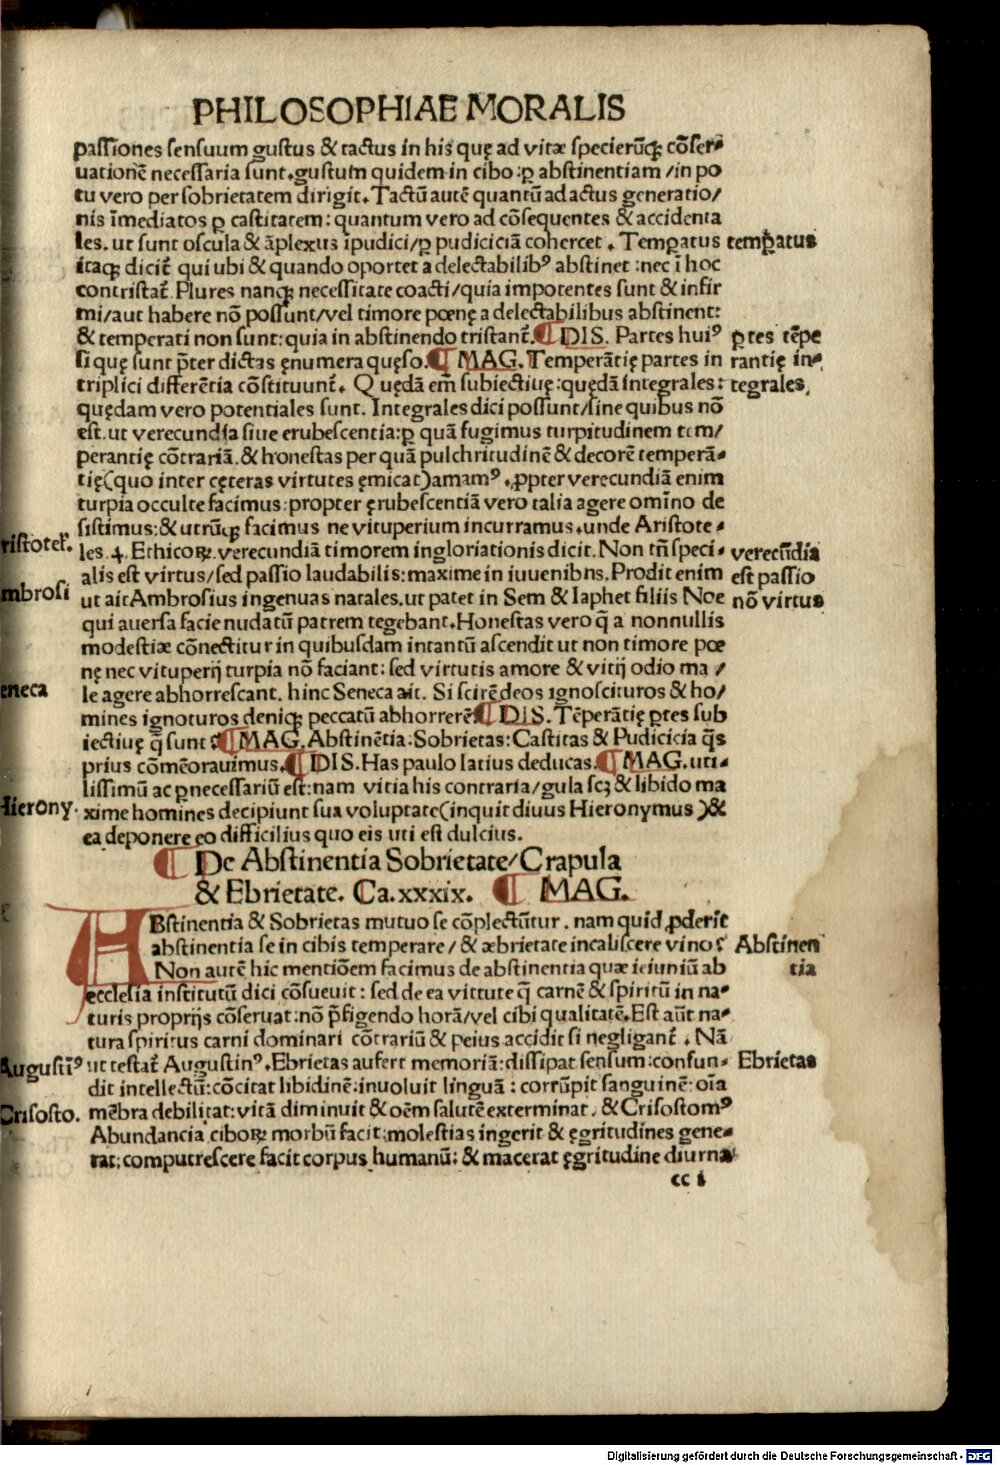 PHILOSOPHIAE MORALIS
passiones sensuum gustus & tactus in his quę ad vitæ specierūqꝫ cōser⸗
uationē necessaria sunt.gustum quidem in cibo:ꝑ abstinentiam/in po
tu vero per sobrietatem dirigit.Tactū autē quantū ad actus generatio/
nis īmediatos ꝑ castitatem:quantum vero ad cōsequentes & accidenta
les.ut sunt oscula & āplexus īpudici/ꝑ pudiciciā cohercet.Temꝑatus
temꝑatus
itaqꝫ dicit̄ qui ubi & quando oportet a delectabilibꝰ abstinet:nec ī hoc
contristat̄.Plures nanqꝫ necessitate coacti/quia impotentes sunt & infir
mi/aut habere nō possunt/vel timore pœnę a delectabilibus abstinent:
& temperati non sunt:quia in abstinendo tristant̄.¶ DIS. Partes huiꝰ
ꝑtes tēpe
si quę sunt p̄ter dictas ęnumera quęso.¶ MAG.Temperātię partes in
rantię in⸗
triplici differētia cōstituunt̄. Quędā em̄ subiectiuę:quędā integrales:
tegrales,
quędam vero potentiales sunt.Integrales dici possunt/sine quibus nō
est.ut verecundia siue erubescentia:ꝑ quā fugimus turpitudinem tem/
perantię cōtrariā.& honestas per quā pulchritudinē & decorē temperā⸗
tię(quo inter cęteras virtutes ęmicat)amamꝰ.ꝓpter verecundiā enim
turpia occulte facimus:propter ęrubescentiā vero talia agere omīno de
sistimus:& utrūqꝫ facimus ne vituperium incurramus.unde Aristote⸗
ristotel̄.
les.4.Ethicoꝝ.verecundiā timorem ingloriationis dicit.Non tn̄ speci⸗
verecūdia
alis est virtus/sed passio laudabilis:maxime in iuuenibns.Prodit enim
est passio
mbrosi
ut ait Ambrosius ingenuas natales.ut patet in Sem & Iaphet filiis Noe
nō virtus
qui auersa facie nudatū patrem tegebant.Honestas vero q̄ a nonnullis
modestiæ cōnectitur in quibusdam intantū ascendit ut non timore pœ
nę nec vituperij turpia nō faciant:sed virtutis amore & vitij odio ma/
eneca
le agere abhorrescant.hinc Seneca ait. Si scirē deos ignoscituros & ho/
mines ignoturos deniqꝫ peccatū abhorrerē¶ DIS.Tēperātię ꝑtes sub
iectiuę q̄ sunt?¶MAG.Abstinētia:Sobrietas:Castitas & Pudicicia q̄s
prius cōmēorauimus.¶DIS.Has paulo latius deducas.¶ MAG.uti⸗
lissimū ac ꝑnecessariū est:nam vitia his contraria/gula scꝫ & libido ma
Hierony.
xime homines decipiunt sua voluptate(inquit diuus Hieronymus)&
ea deponere eo difficilius quo eis uti est dulcius.
¶ De Abstinentia Sobrietate/Crapula
& Ebrietate. Ca.xxxix. ¶ MAG.
ABstinentia & Sobrietas mutuo se cōplectūtur.nam quid ꝓderit
abstinentia se in cibis temperare/& æbrietate incaliscere vino?
Abstinen
Non autē hic mentiōem facimus de abstinentia quæ ieiuniū ab
tia
ecclesia institutū dici cōsueuit:sed de ea virtute q̄ carnē & spiritū in na⸗
turis proprijs cōseruat:nō p̄figendo horā/vel cibi qualitatē.Est aūt na⸗
tura spiritus carni dominari cōtrariū & peius accidit si negligant̄. Nā
Augustīꝰ
ut testat̄ Augustinꝰ.Ebrietas aufert memoriā:dissipat sensum:confun⸗
Ebrietas
dit intellectū:cōcitat libidinē:inuoluit linguā:corrūpit sanguinē:oīa
Crisosto.
mēbra debilitat:vitā diminuit & oēm salutē exterminat.& Crisostomꝰ
Abundancia ciboꝝ morbū facit:molestias ingerit & ęgritudines gene⸗
rat:computrescere facit corpus humanū:& macerat ęgritudine diurna
cc i
Digitalisierung gefördert durch die Deutsche Forschungsgemeinschaft - DFG